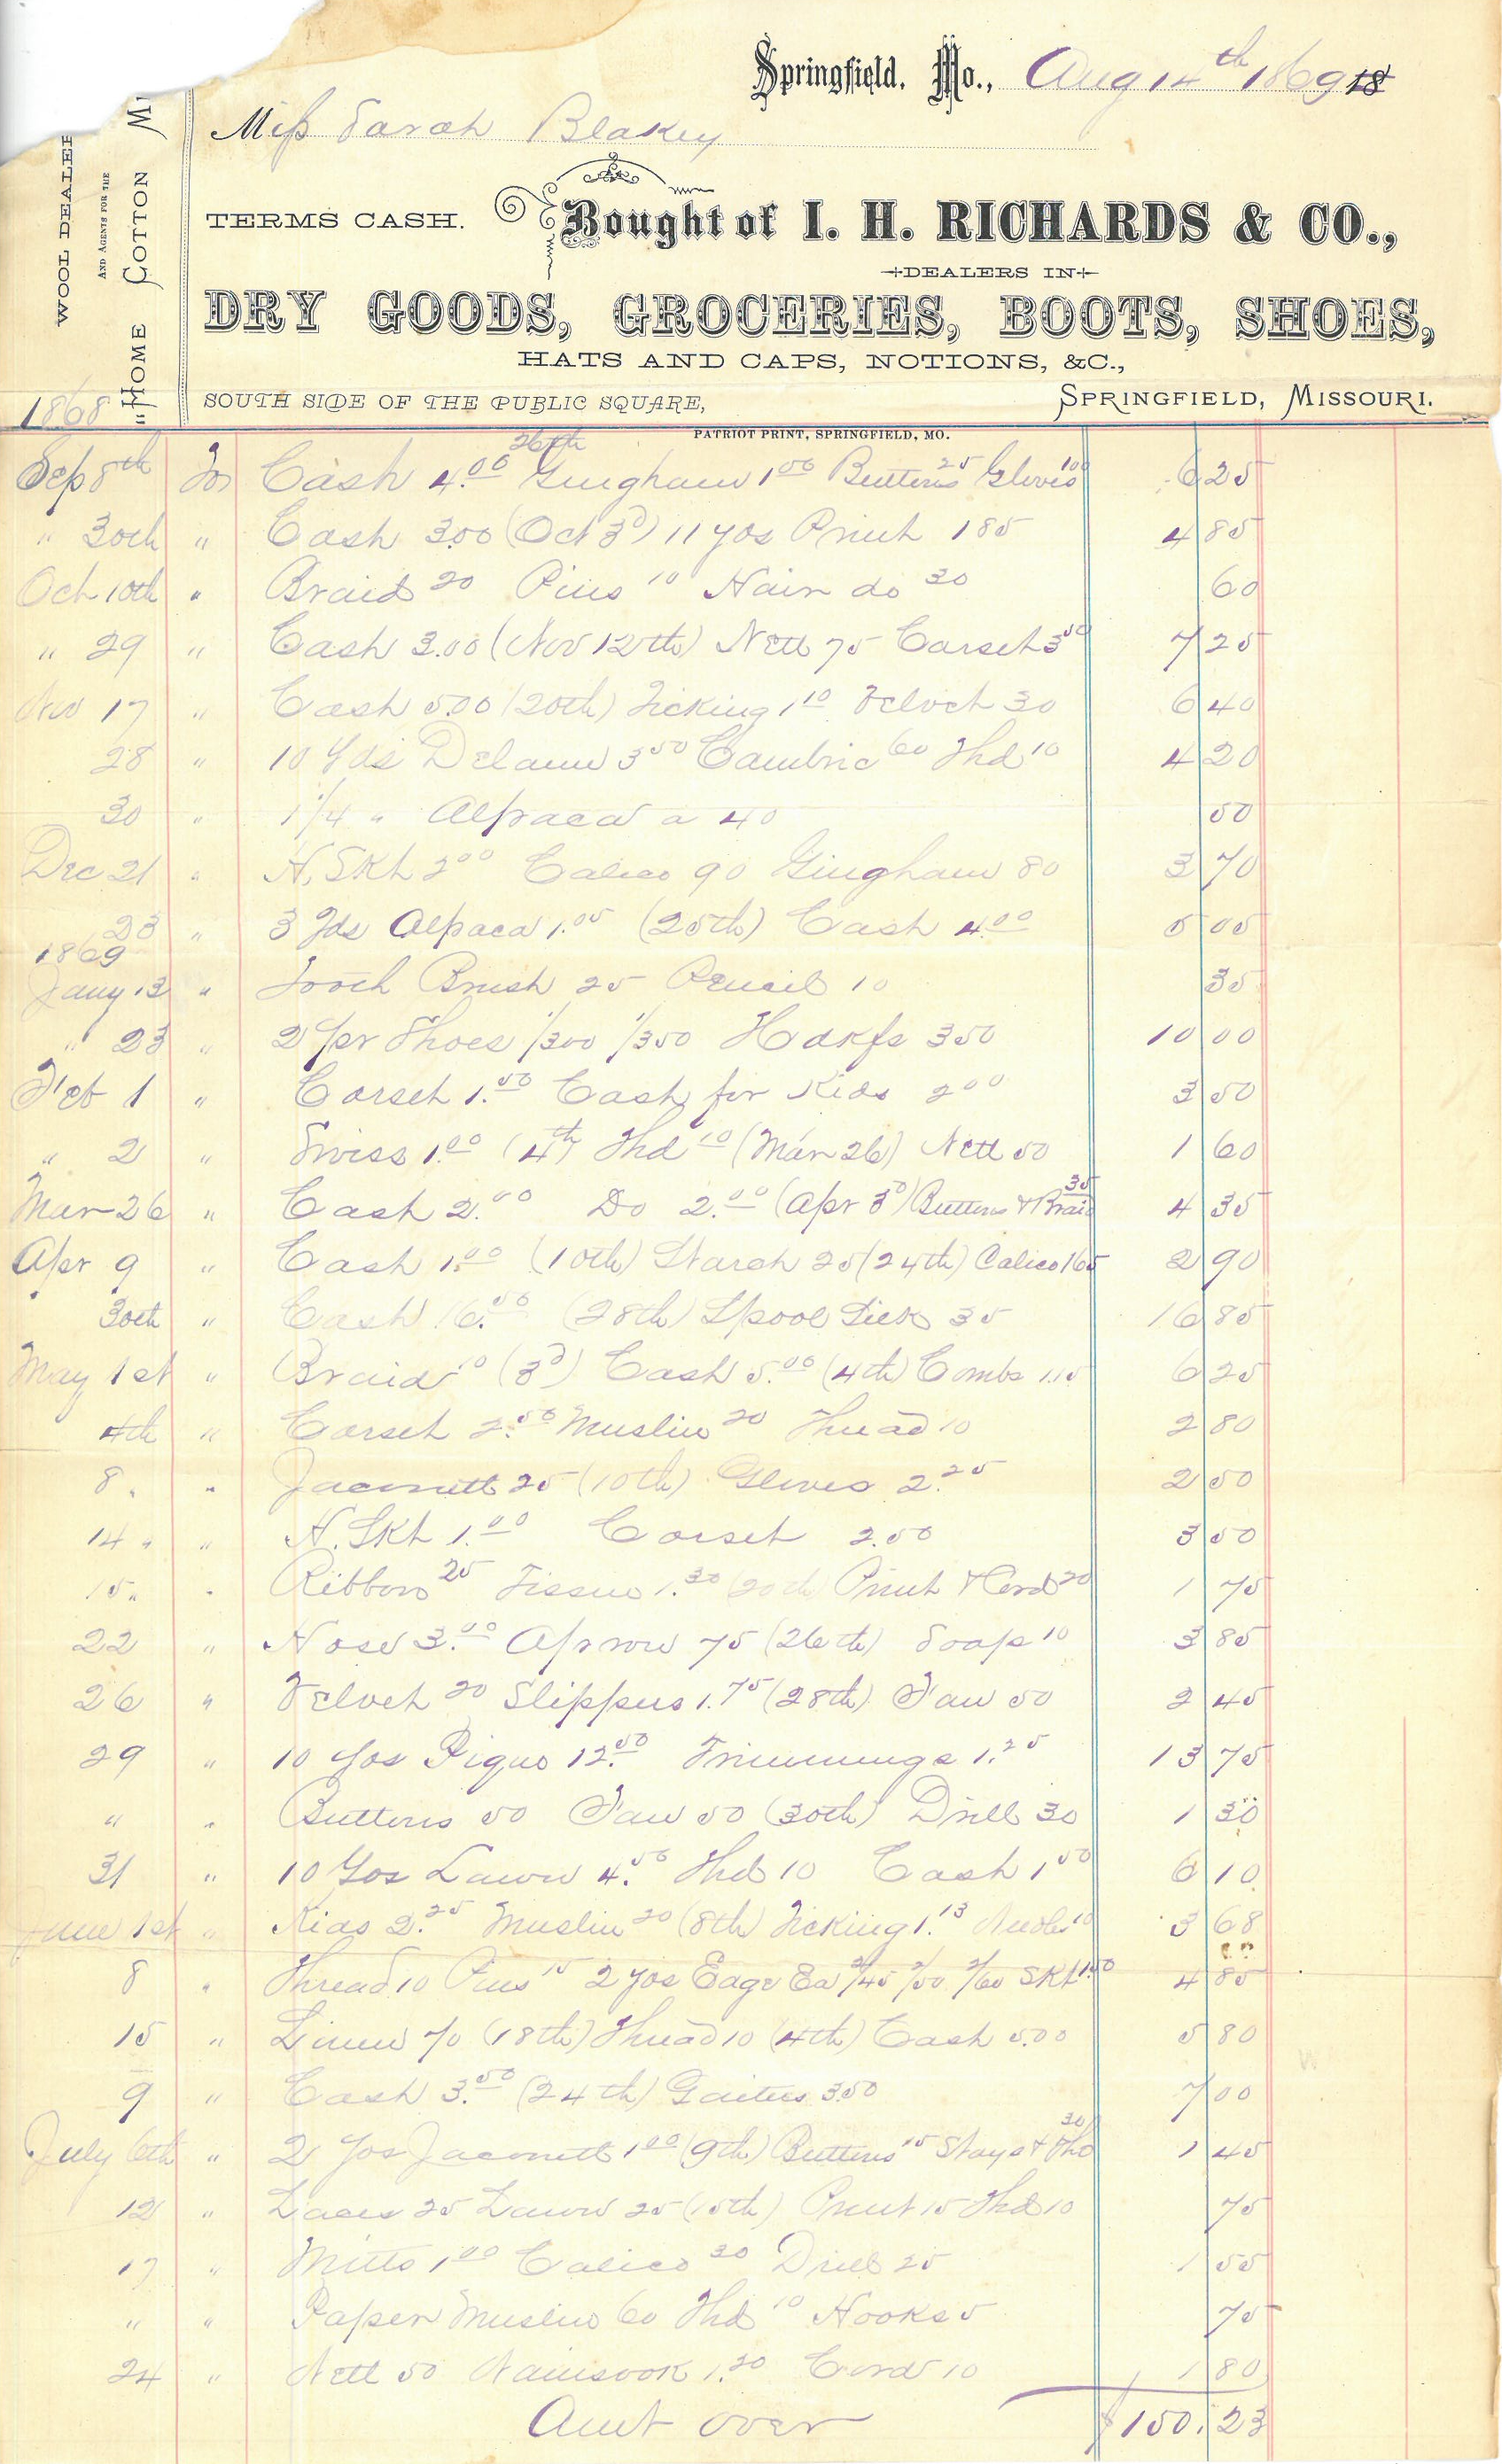 Springfield, Mo., Aug 14th 1869 18
Miss Sarah Blakey
WOOL DEALER
AND AGENTS FOR THE
"HOME COTTON MI
TERMS CASH. Bought of I. H. RICHARDS & CO.,
DEALERS IN
DRY GOODS, GROCERIES, BOOTS, SHOES,
HATS AND CAPS, NOTIONS, &C.,
SOUTH SIDE OF THE PUBLIC SQUARE, SPRINGFIELD, MISSOURI.
PATRIOT PRINT, SPRINGFIELD, MO.
1868
Sep 8th To Cash 4.00 26th Gingham 1 00 Buttons 25 Gloves 1 00 6 25
" 30th " Cash 3.00 (Oct 3d) 11 yds Print 1 85 4 85
Oct 10th " Braid 20 Pins 10 Hair do 30 60
" 29 " Cash 3.00 (Nov 12th) Nett 75 Corset 3 50 7 25
Nov 17 " Cash 5.00 (20th) Ticking 1 10 Velvet 30 6 40
28 " 10 Yds Delane 3 50 Cambric 60 Thd 10 4 20
30 " 1 1/4 " Alpaca a 40 50
Dec 21 " H. Skt 2 00 Calico 90 Gingham 80 3 70
23 " 3 Yds Alpaca 1.05 (25th) Cash 4.00 5 05
1869
Jany 13 " Tooth Brush 25 Pencil 10 35
" 23 " 2 pr Shoes 1/300 1/350 Hdkfs 350 10 00
Feb 1 " Corset 1.50 Cash for Kids 2 00 3 50
" 2 " Swiss 1.00 (4th) Thd 10 (Mar 26) Nett 50 1 60
Mar 26 " Cash 2.00 Do 2.00 (Apr 3d) Buttons & Braid 35 4 35
Apr 9 " Cash 1.00 (10th) Starch 25 (24th) Calico 165 2 90
30th " Cash 16.50 (28th) Spool Silk 35 16 85
May 1st " Braid 10 (3d) Cash 5.00 (4th) Combs 1.15 6 25
4th " Corset 2.50 Muslin 20 Thread 10 2 80
8 " " Jaconett 25 (10th) Gloves 2.25 2 50
14 " " H. Skt 1.00 Corset 2.50 3 50
15 " " Ribbon 25 Tissue 1.30 (20th) Print & Cord 20 1 75
22 " Hose 3.00 Apron 75 (26th) Soap 10 3 85
26 " Velvet 20 Slippers 1.75 (28th) Fan 50 2 45
29 " 10 Yds Pique 12.50 Trimmings 1.25 13 75
" " Buttons 50 Fan 50 (30th) Drill 30 1 30
31 " 10 Yds Lawn 4.50 Thd 10 Cash 1 50 6 10
June 1st " Kids 2.25 Muslin 20 (8th) Ticking 1.13 Needles 10 3 68
8 " Thread 10 Pins 15 2 yds Edge Ea 2/45 2/50 2/60 Skt 1.50 4 85
15 " Linen 70 (18th) Thread 10 (4th) Cash 5.00 5 80
9 " Cash 3.50 (24th) Gaiters 3.50 7 00
July 6th " 2 Yds Jaconett 1 00 (9th) Buttons 15 Stays & Thd 30 1 45
12 " Laces 25 Lawn 25 (15th) Print 15 Thd 10 75
17 " Mitts 1 00 Calico 30 Drill 25 1 55
" " Paper Muslin 60 Thd 10 Hooks 5 75
24 " Nett 50 Nainsook 1.20 Cord 10 1 80
Amt over $150.23